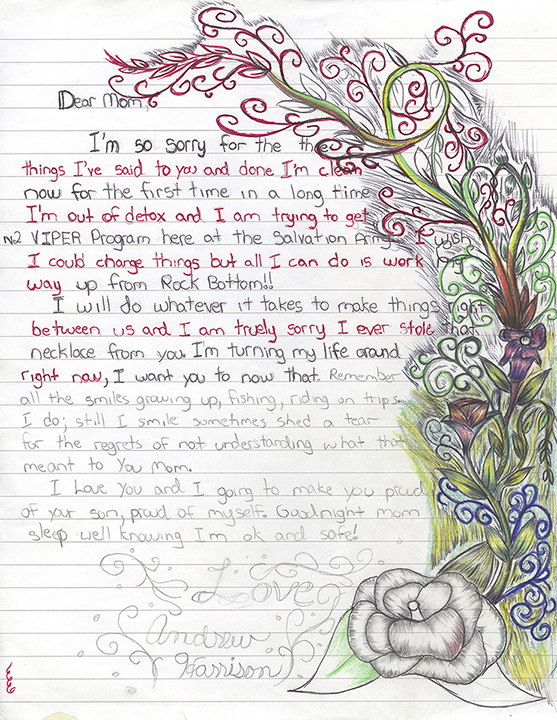 Dear Mom,
I'm so sorry for the the
things I've said to you and done I'm clean
now for the first time in a long time
I'm out of detox and I am trying to get
No2 VIPER Program here at the Salvation Army I wish
I could change things but all I can do is work my
way up from Rock Bottom!!
I will do whatever it takes to make things right
between us and I am truely sorry I ever stole that
necklace from you. I'm turning my life around
right now, I want you to now that. Remember
all the smiles growing up, fishing, riding on trips
I do; still I smile sometimes shed a tear
for the regrets of not understanding what that
meant to You Mom.
I Love You and I going to make you proud
of your son, proud of myself. Goodnight mom
sleep well knowing I'm ok and safe!
Love
Andrew
Harrison